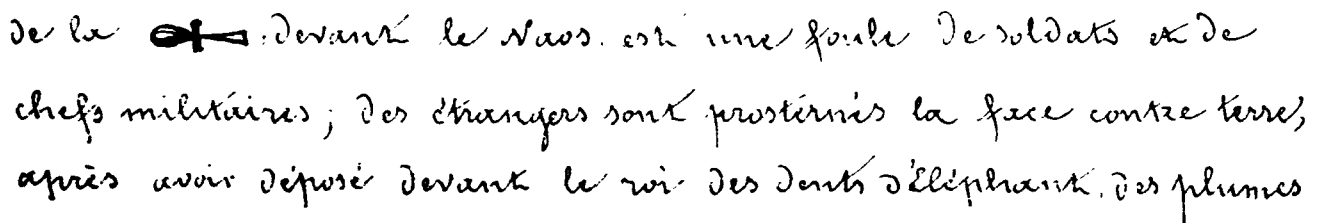 de la ☥. devant le naos. est une foule de soldats et de
chefs militaires; des étrangers sont prosternés la face contre terre,
après avoir déposé devant le roi des dents d'éléphant. des plumes